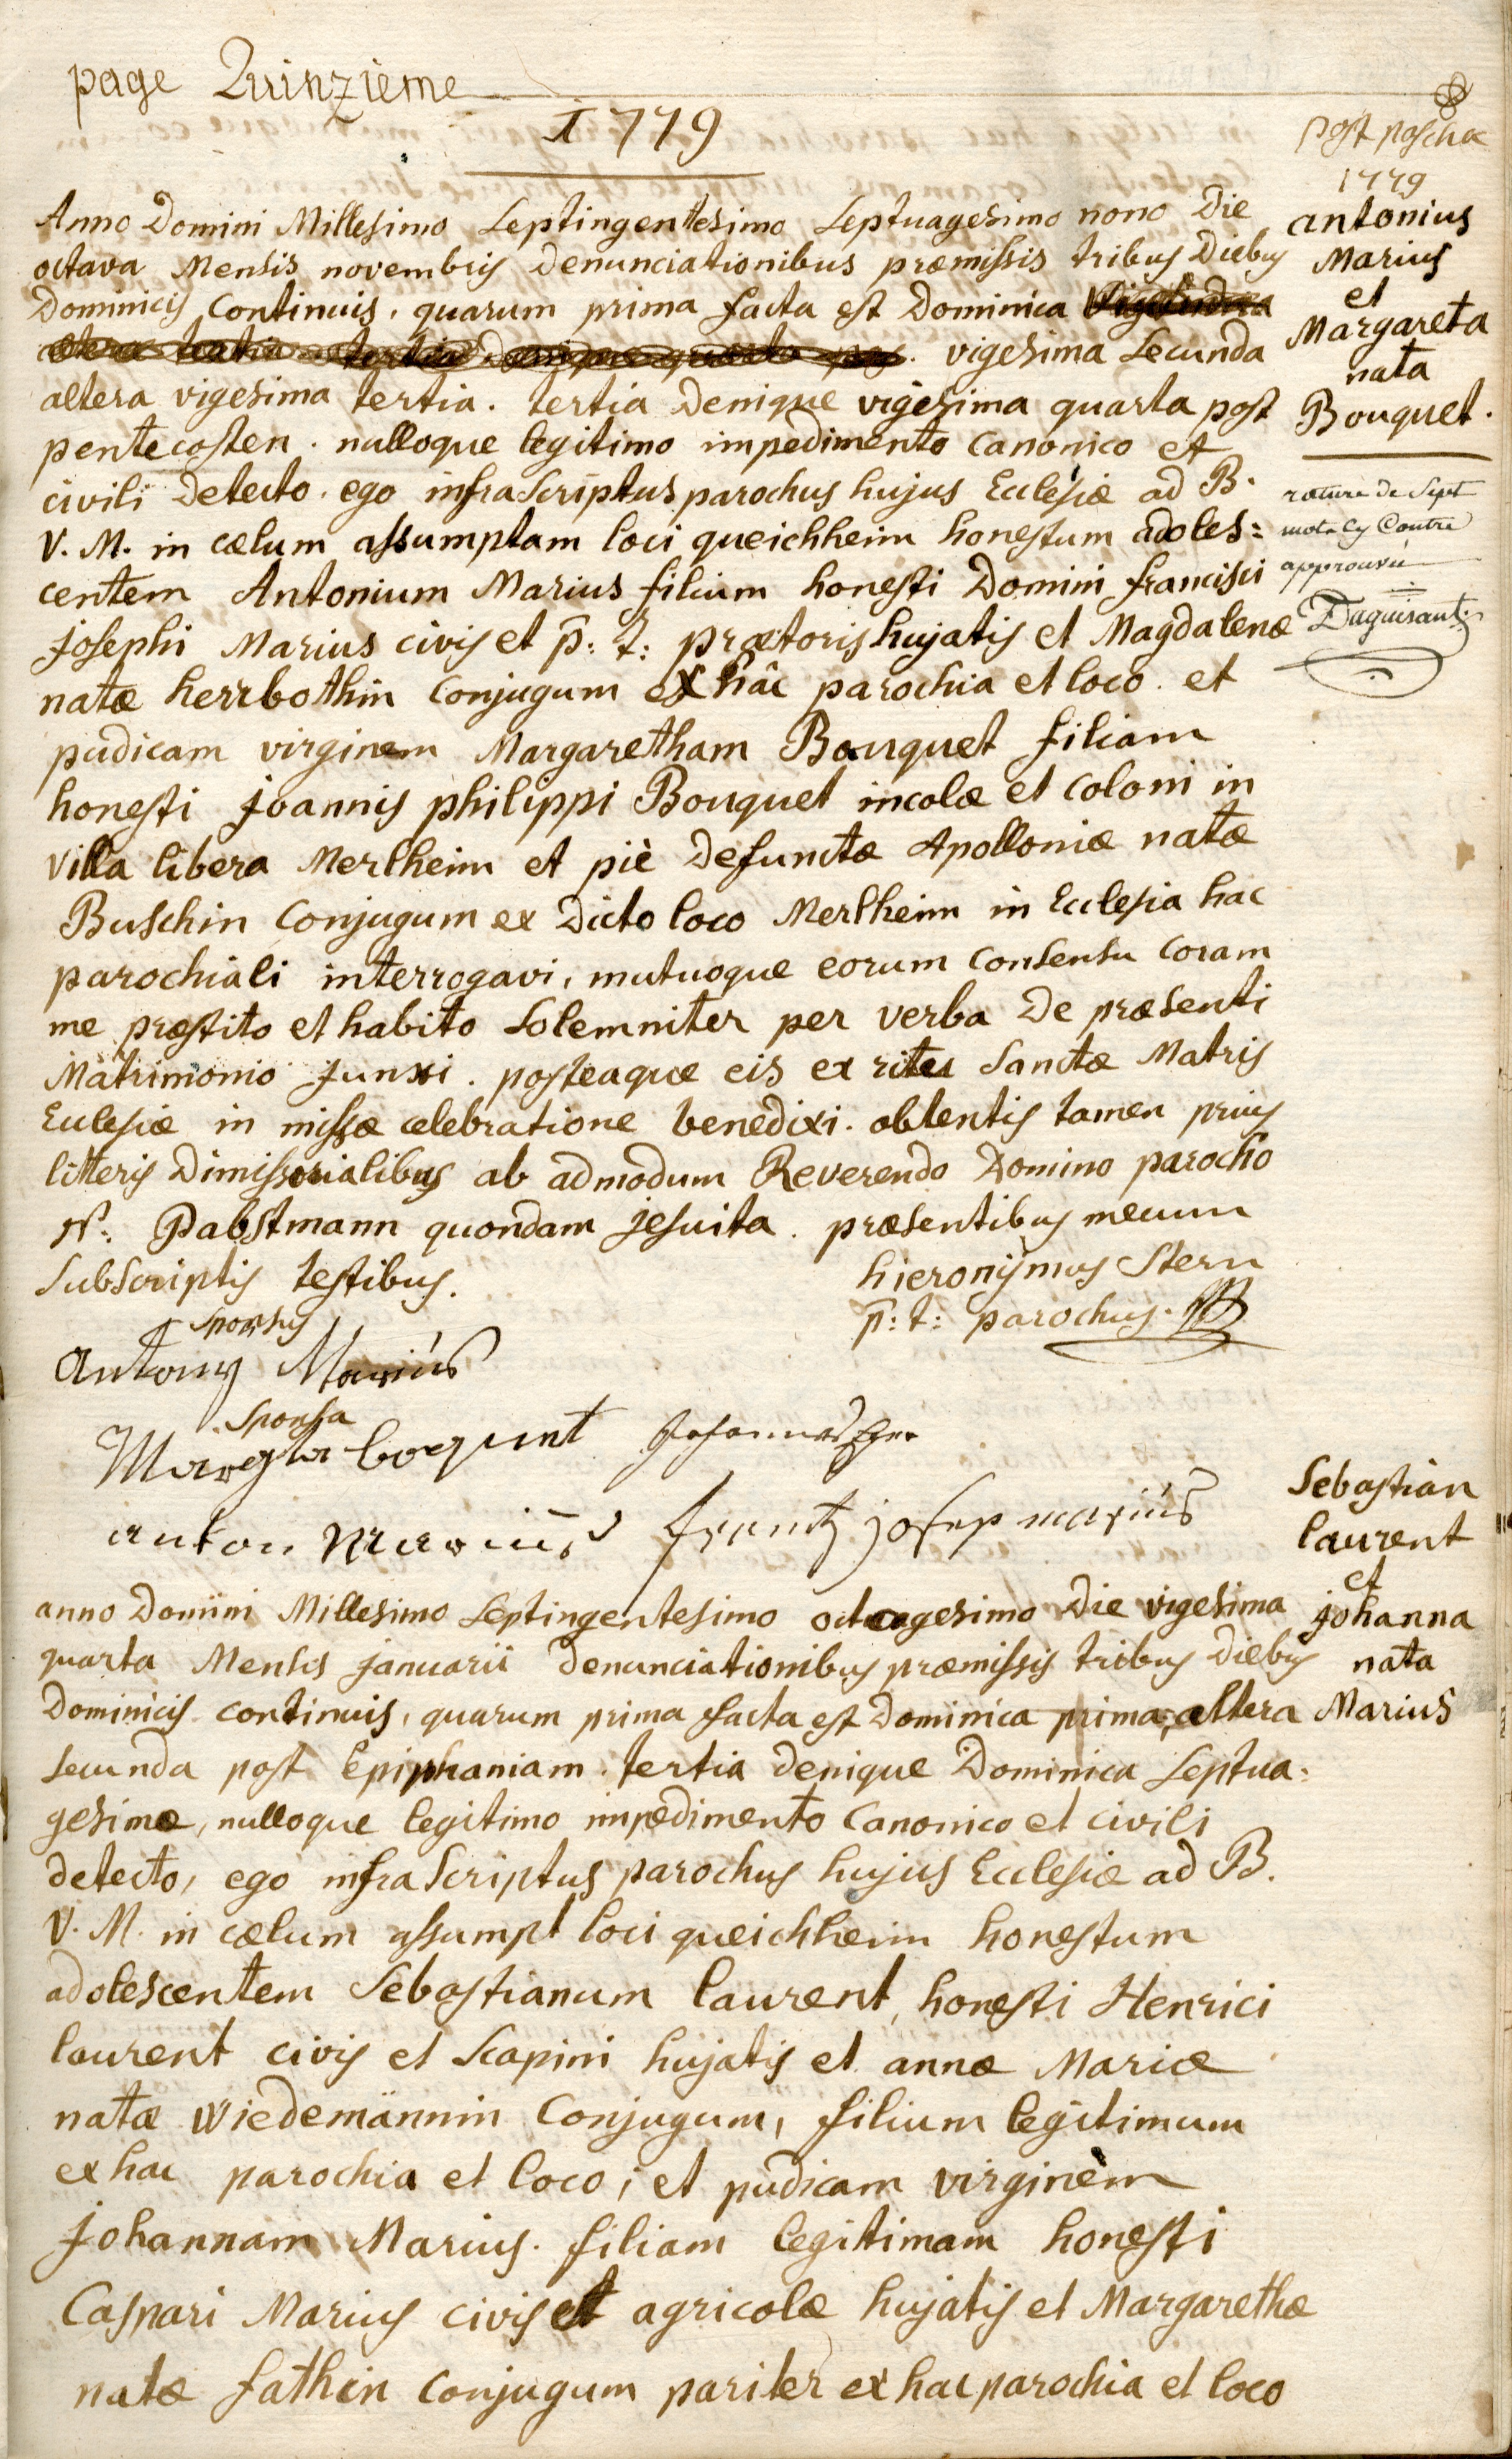 page Quinzieme
1779
Anno Domini Millesimo Septingentesimo Septuagesimo nono Die
octava Mensis novembris Denunciationibus præmissis tribus Diebus
Dominicis Continuis, quarum prima facta est Dominica
vigesima Secunda
altera vigesima tertia. tertia Denique vigesima quarta post
pentecosten. nulloque legitimo impedimento Canonico et
civili Detecto. ego infraScriptus parochus hujus Ecclesiæ ad B.
V. M. in cælum assumptam loci queichheim honestum adoles=
centem Antonium Marius filium honesti Domini francisci
josephi Marius civis et p: t: prætoris hujatis et Magdalenæ
natæ herrbothin Conjugum ex hâc parochia et loco. et
pudicam virginem Margaretham Bouquet filiam
honesti joannis philippi Bouquet incolæ et coloni in
villa libera Merlheim et piè Defunctæ Apolloniæ natæ
Buschin Conjugum ex Dicto loco Merlheim in Ecclesia hac
parochiali interrogavi, mutuoque eorum Consensu Coram
me præstito et habito Solemniter per verba De præsenti
Matrimonio junxi. posteaque eis ex ritu Sanctæ Matris
Ecclesiæ in missæ celebratione benedixi. obtentis tamen prius
litteris Dimissorialibus ab admodum Reverendo Domino parocho
N: Pabstmann quondam jesuita. præsentibus mecum
SubScriptis testibus.
hieronÿmus Stern
p: t: parochus.
Sponsus
Antony Marius
Sponsa
Margta boquint
anton Marius
frantz josep marius
anno Domini Millesimo Septingentesimo octogesimo Die vigesima
quarta Mensis januarii Denunciationibus præmissis tribus Diebus
Dominicis continuis, quarum prima facta est Dominica prima, altera
secunda post Epiphaniam. tertia denique Dominica Septua=
gesimæ, nulloque legitimo impedimento Canonico et civili
detecto, ego infraScriptus parochus hujus Ecclesiæ ad B.
V. M. in cælum assumpt loci queichheim honestum
adolescentem Sebastianum laurent, honesti Henrici
laurent civis et Scapini hujatis et annæ Mariæ
natæ wiedemännin Conjugum, filium legitimum
ex hac parochia et loco; et pudicam virginem
johannam Marius. filiam legitimam honesti
Caspari Marius civis et agricolæ hujatis et Margarethæ
natæ fathin Conjugum pariter ex hac parochia et loco
post pascha
1779
antonius
Marius
et
Margareta
nata
Bouquet.
rature de Sept
mots cy Contre
approuvée
Daguisant
Sebastian
laurent
et
johanna
nata
Marius